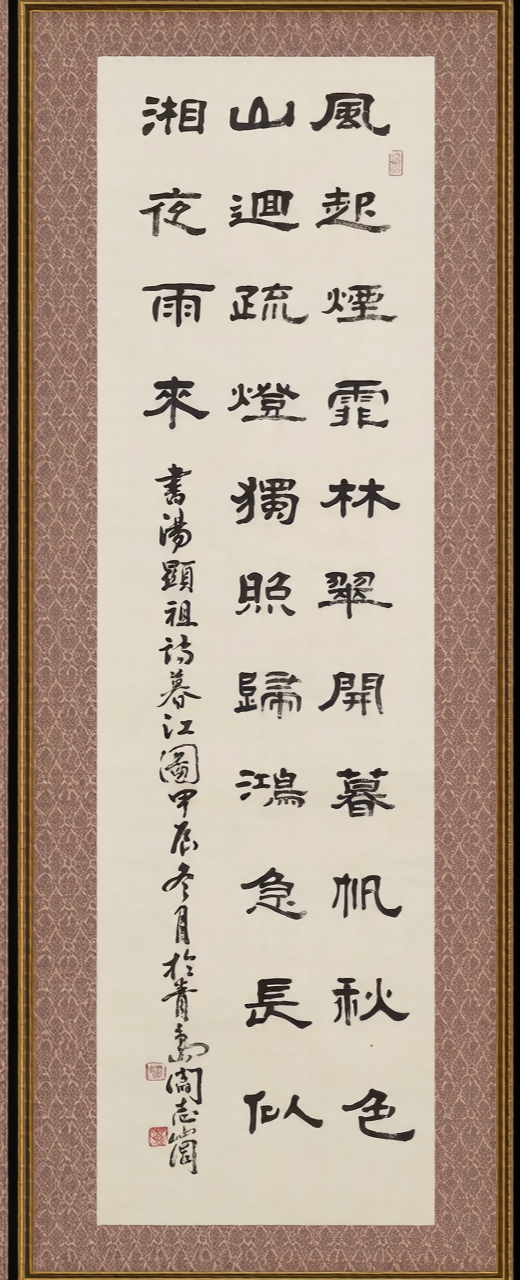 風起煙霏林翠開暮帆秋色
山迴疏燈獨照歸鴻急長似
湘夜雨來
書湯顯祖詩暮江圖甲辰冬月於青島閻志